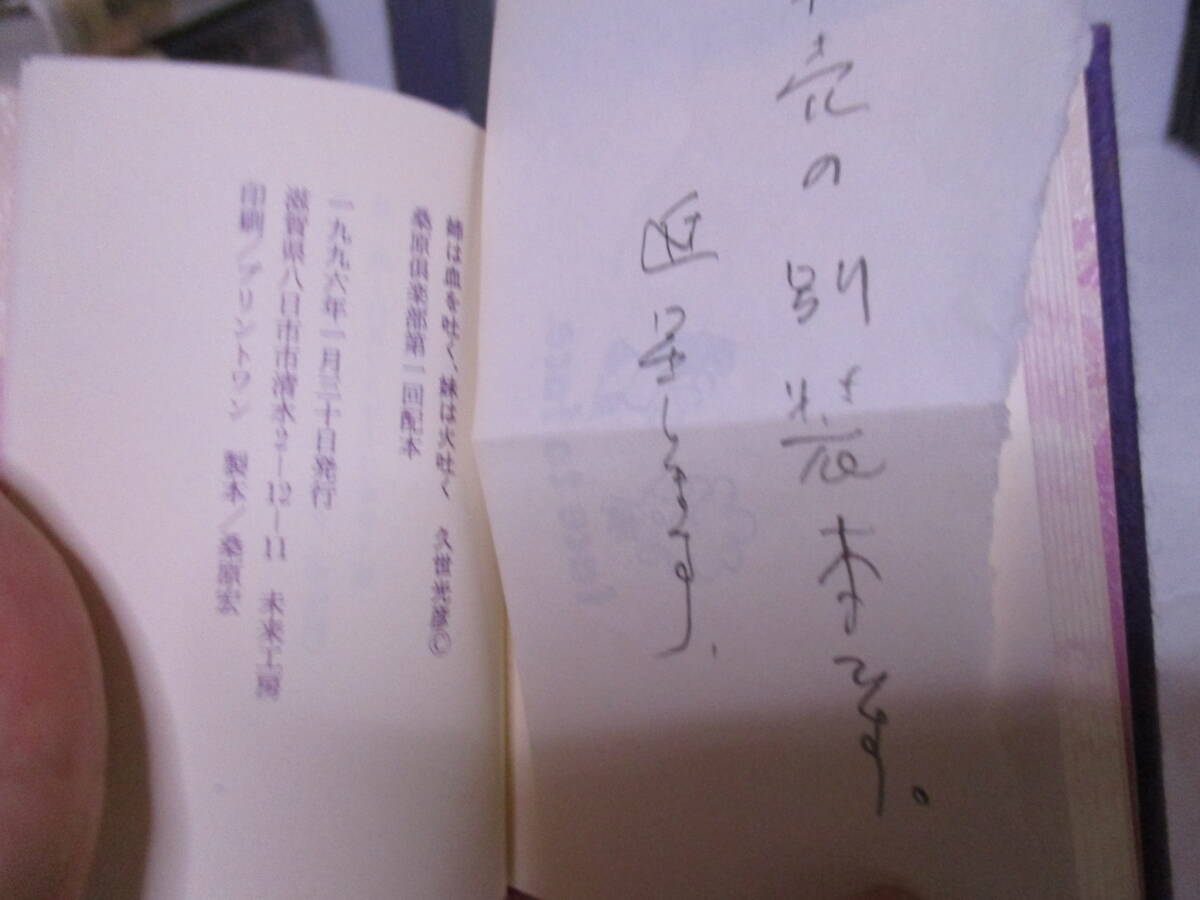 売の別装本です。
進呈します、
姉は血を吐く、妹は火吐く　久世光彦©
桑原倶楽部第一回配本
一九九六年一月三十日発行
滋賀県八日市市清水2―12―11　未来工房
印刷/プリントワン　製本/桑原宏